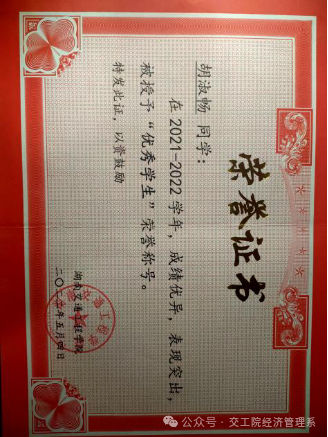 荣誉证书
胡淑畅 同学：
在2021-2022学年，成绩优异，表现突出，
被授予“优秀学生”荣誉称号。
特发此证，以资鼓励
湖南交通工程学院
二〇二二年五月四日
公众号 · 交工院经济管理系